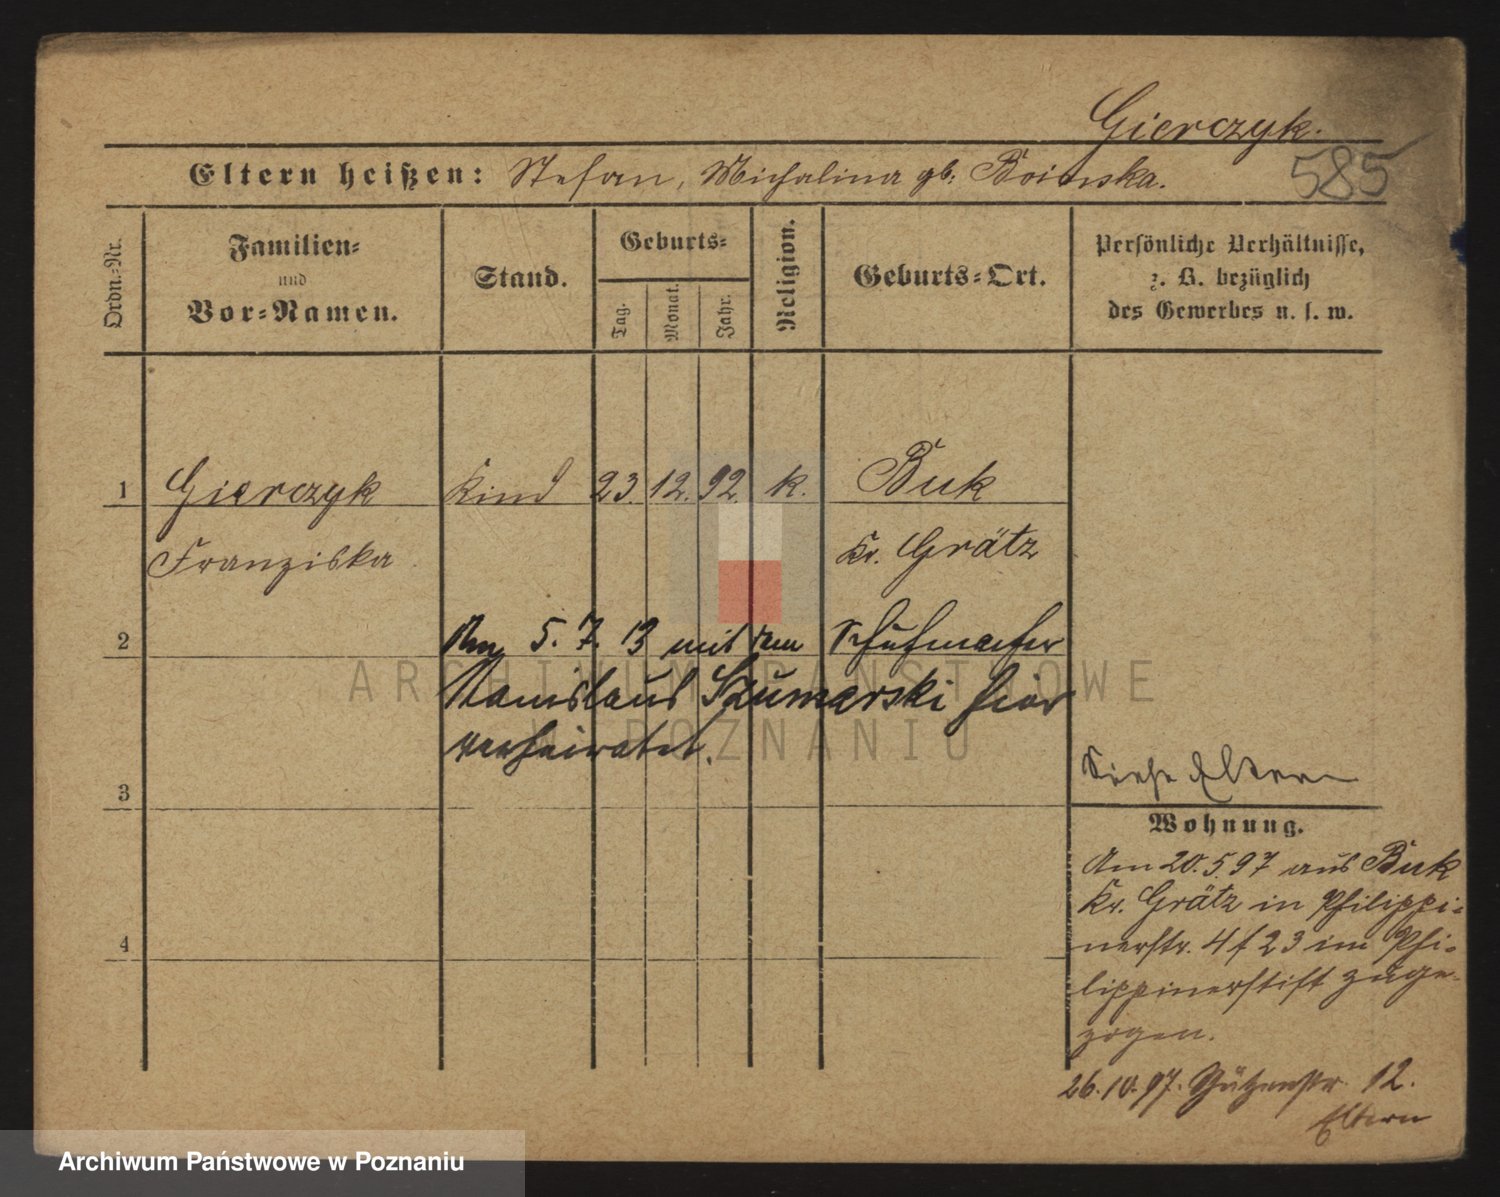 Gierczyk.
585
Eltern heißen: Stefan, Michalina gb. Boinska.
Ordn.-Nr.
Familien-
und
Vor-Namen.
Stand.
Geburts-
Tag.
Monat.
Jahr.
Religion.
Geburts-Ort.
Persönliche Verhältnisse,
z. B. bezüglich
des Gewerbes u. s. w.
1 Gierczyk Kind 23. 12. 92. k. Buk
Franziska Kr. Grätz
2 Am 5. 7. 13 mit dem Schuhmacher
Stanislaus Szumarski hier
verheiratet.
3
Siehe Eltern
Wohnung.
Am 20.5.97 aus Buk
Kr. Grätz in Philippi-
nerstr. 4/23 im Phi-
lippinerstift zuge-
zogen.
4
26.10.97. Schützenstr. 12.
Eltern
ARCHIWUM PAŃSTWOWE
W POZNANIU
Archiwum Państwowe w Poznaniu